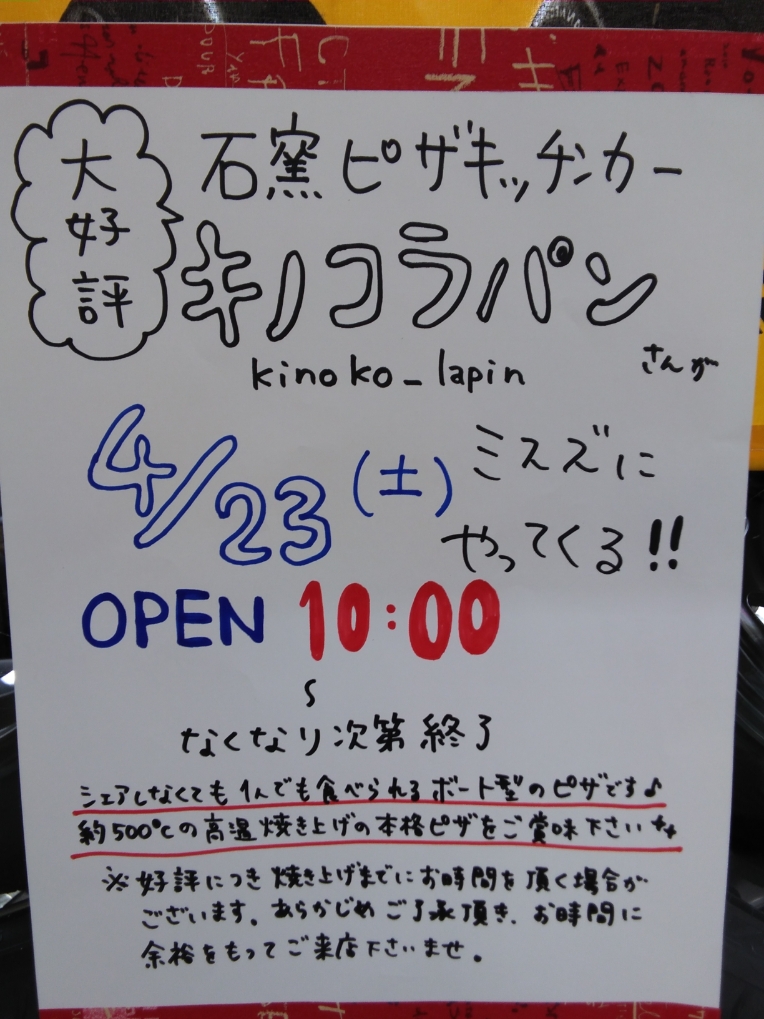 大好評
石窯ピザキッチンカー
キノコラパン
さんが
kinoko_lapin
4/23(土)
ミスズに
やってくる!!
OPEN 10:00
〜
なくなり次第終了
シェアしなくても1人でも食べられるボート型のピザです♪
約500℃の高温焼き上げの本格ピザをご賞味下さい
※好評につき焼き上げまでにお時間を頂く場合が
ございます。あらかじめご了承頂き、お時間に
余裕をもってご来店下さいませ。